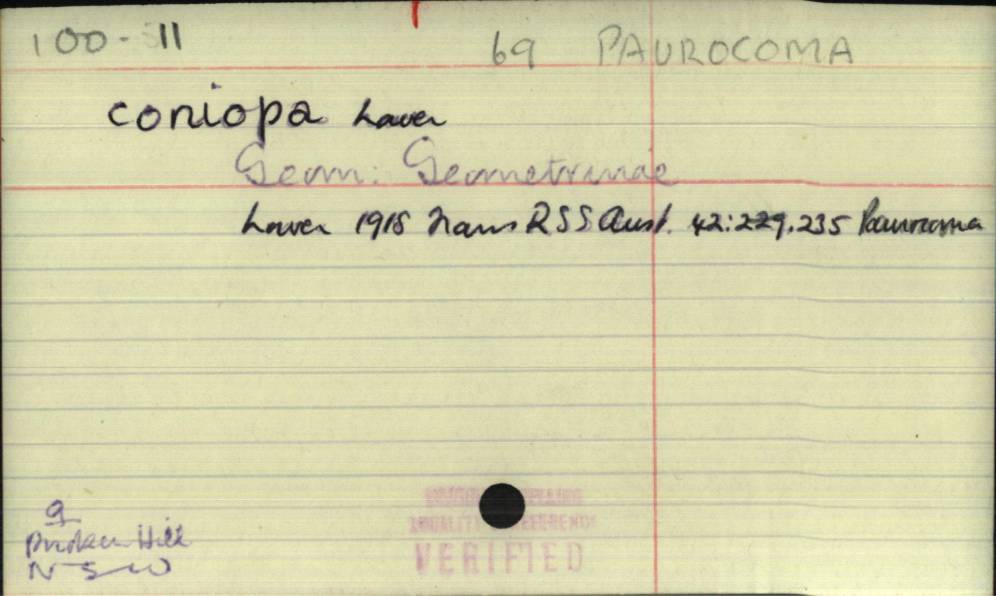 100-511 69 PAUROCOMA
coniopa Lower
Geom: Geometrinae
Lower 1918 Trans R S S Aust. 42:229.235 Paurocoma
♀
Broken Hill
N S W
LOCALITY REFERENCE
VERIFIED